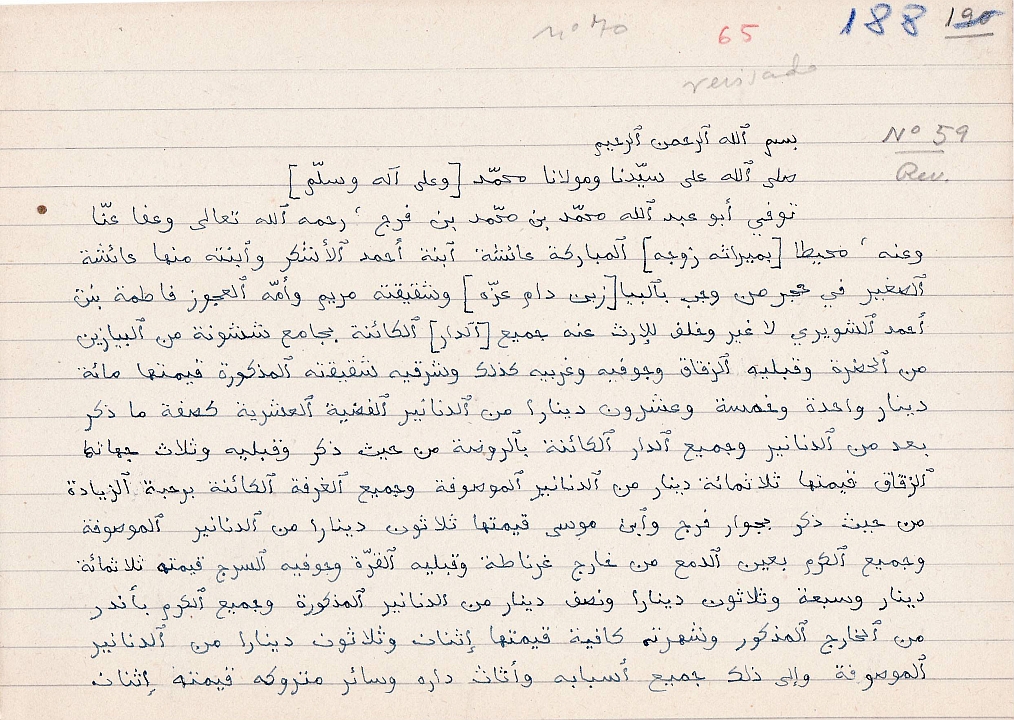 nº 70
65
188
190
revisado
Nº 59
Rev.
بسم ٱلله ٱلرحمن ٱلرحيم
صلى ٱلله على سيّدنا ومولانا محمّد [وعلى آله وسلّم]
توفي أبو عبد ٱلله محمّد بن محمّد بن فرج ، رحمه ٱلله تعالى وعفا عنّا
وعنه ، محيطا [بميراثه زوجه] ٱلمباركة عائشة ٱبنة أحمد ٱلأشكر وٱبنته منها عائشة
ٱلصغير في حجر من وجب بٱلبيا[زين دام عزّه] وشقيقته مريم وأمّه ٱلعجوز فاطمة بنت
أحمد ٱلشويري لا غير وخلف للإرث عنه جميع [ٱلدار] ٱلكائنة بجامع ششونة من ٱلبيازين
من ٱلحضرة وقبليه ٱلزقاق وجوفيه وغربيه كذلك وشرقيه شقيقته ٱلمذكورة قيمتها مائة
دينار واحدة وخمسة وعشرون دينارا من ٱلدنانير ٱلفضية ٱلعشرية كصفة ما ذكر
بعد من ٱلدنانير وجميع ٱلدار ٱلكائنة بٱلروضة من حيث ذكر وقبليه وثلاث جهاتها
ٱلزقاق قيمتها ثلاثمائة دينار من ٱلدنانير ٱلموصوفة وجميع ٱلغرفة ٱلكائنة برحبة ٱلزيادة
من حيث ذكر بجوار فرج وٱبن موسى قيمتها ثلاثون دينارا من ٱلدنانير ٱلموصوفة
وجميع ٱلكرم بعين ٱلدمع من خارج غرناطة وقبليه ٱلقرّة وجوفيه ٱلسرج قيمته ثلاثمائة
دينار وسبعة وثلاثون دينارا ونصف دينار من ٱلدنانير ٱلمذكورة وجميع ٱلكرم بأندر
من ٱلخارج ٱلمذكور وشهرته كافية قيمتها إثنان وثلاثون دينارا من ٱلدنانير
ٱلموصوفة وإلى ذلك جميع أسبابه وأثاث داره وسائر متروكه قيمته إثنان